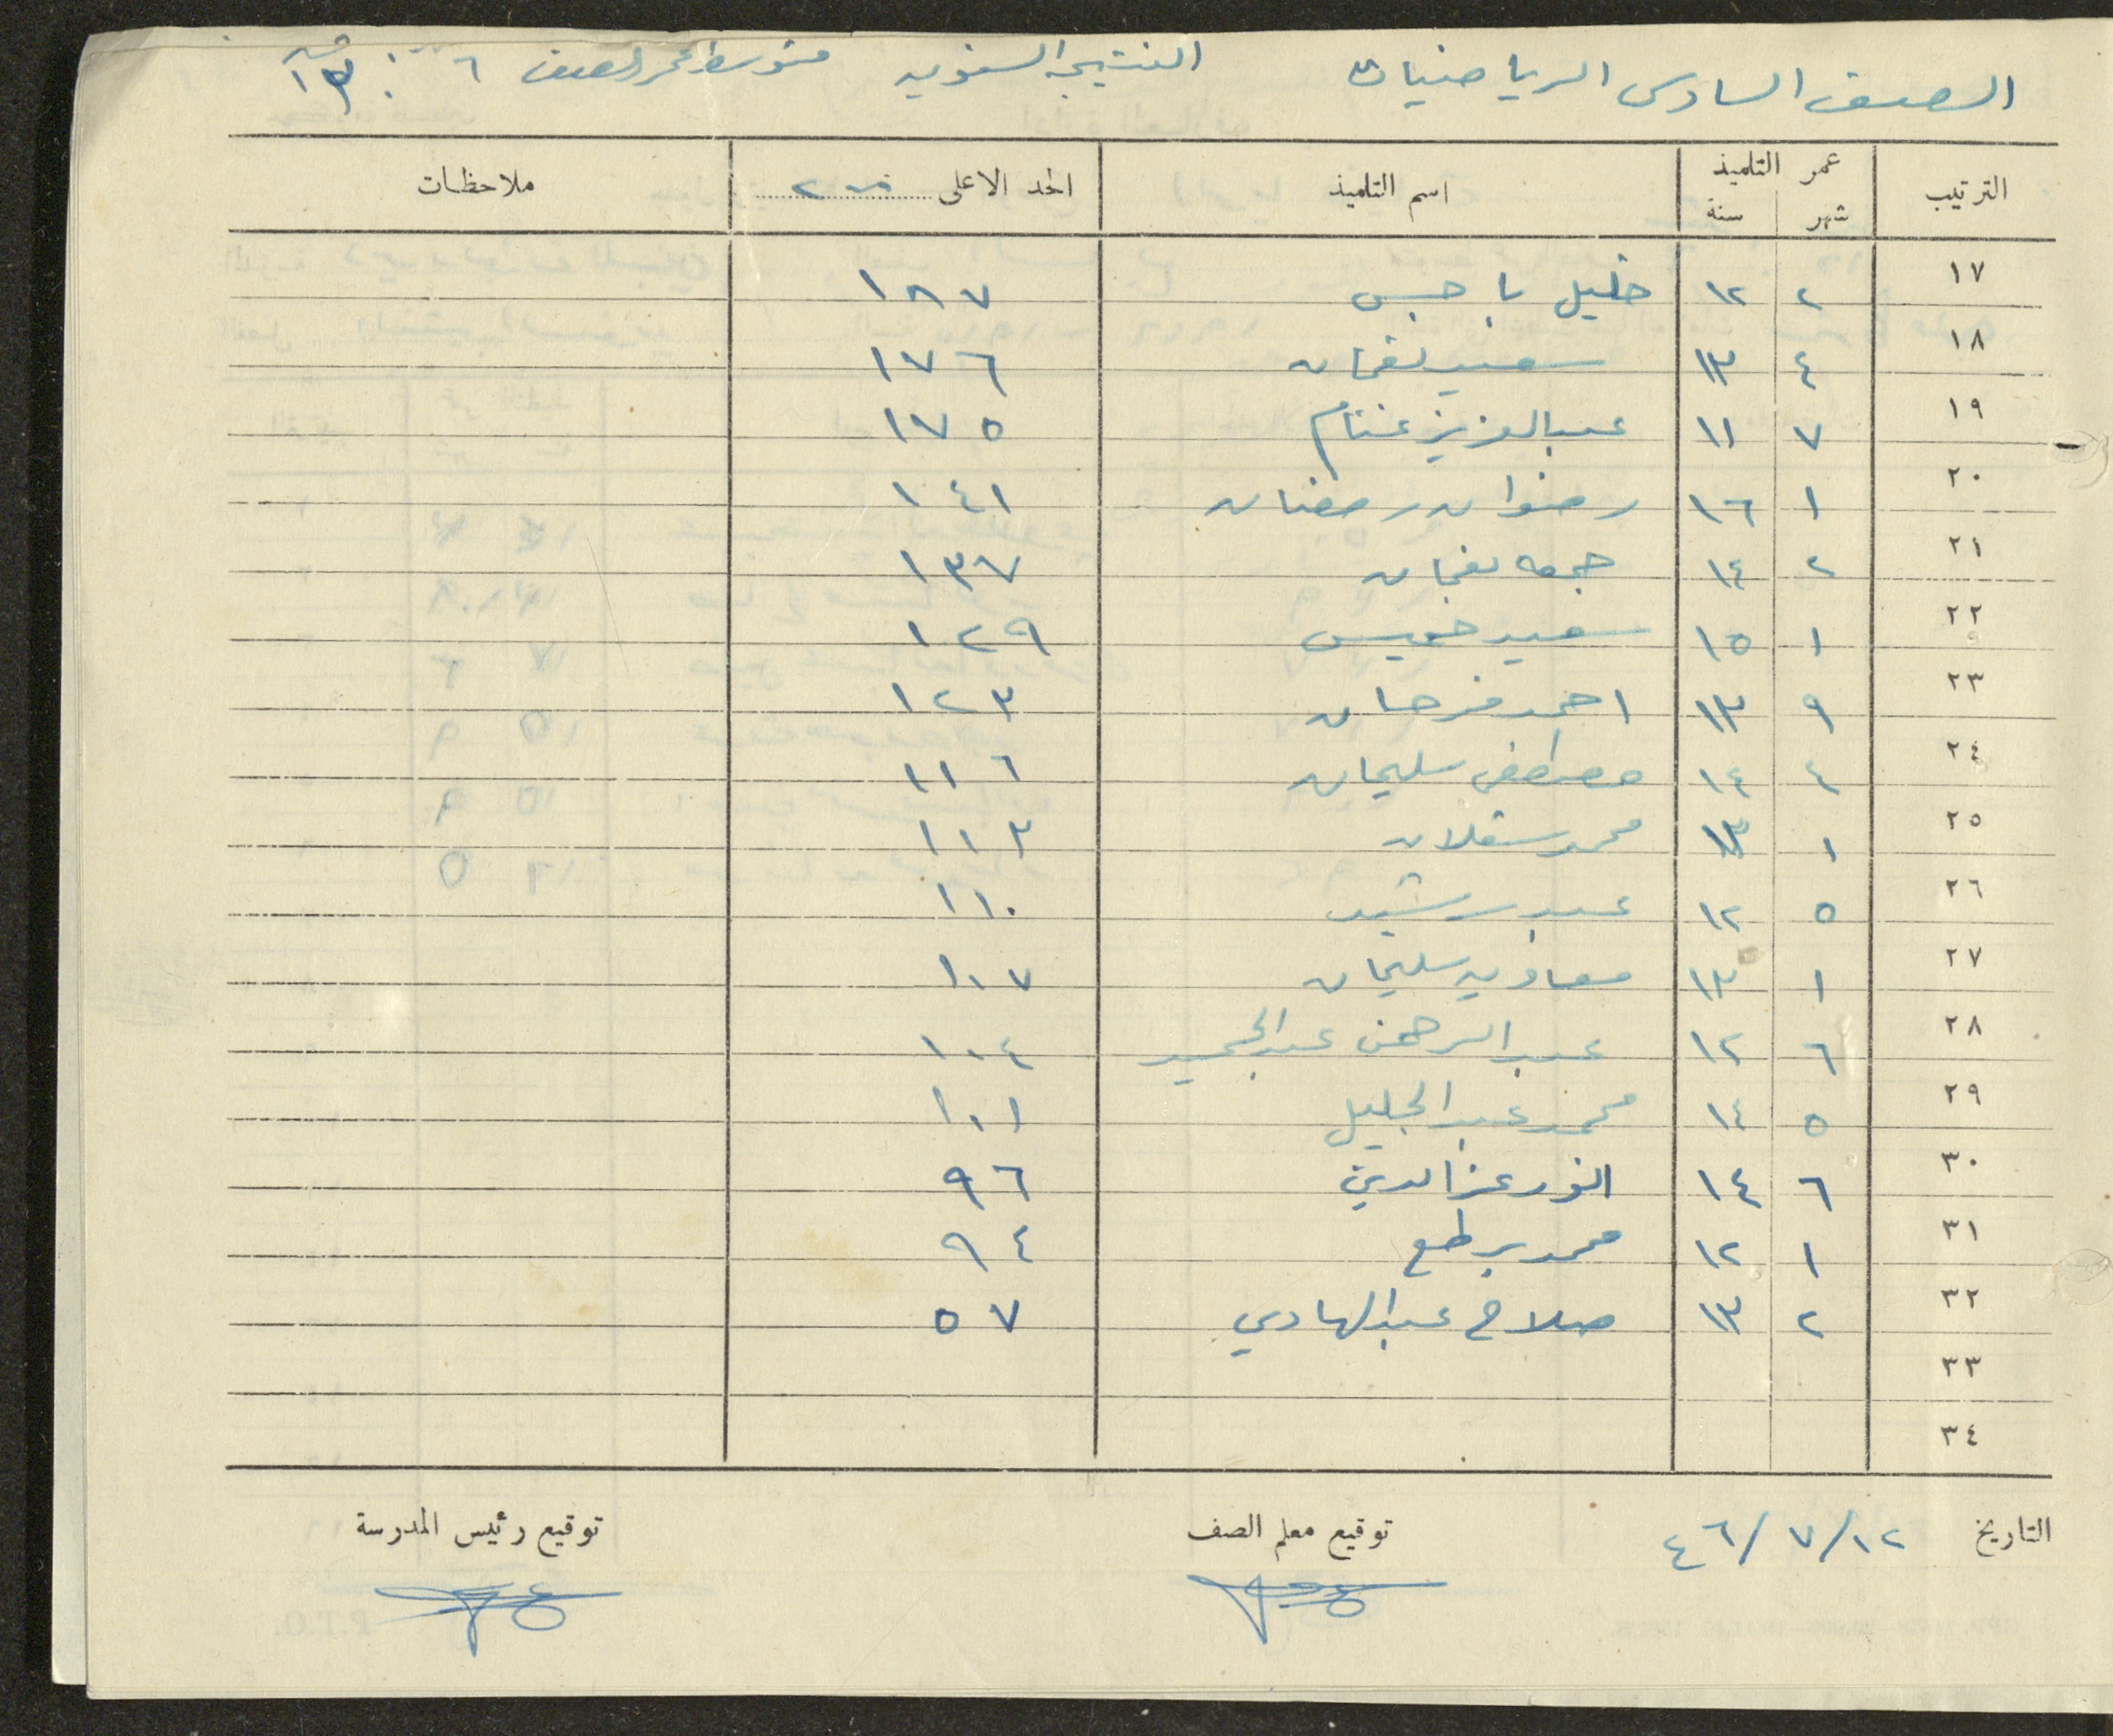 الصف السادس الرياضيات النتيجة السنويه متوسط عمر الصف ٦
الترتيب عمر التلميذ اسم التلميذ الحد الاعلى ملاحظات
شهر سنة
١٧ ٢ ١٢ خليل ١٨٧
١٨ ٤ ١٣ سعيد نعمان ١٧٦
١٩ ٧ ١١ عبد العزيز غنام ١٧٥
٢٠ ١ ١٦ رضوان رمضان ١٤١
٢١ ٢ ١٤ جمعه نعمان ١٣٧
٢٢ ١ ١٥ سعيد خميس ١٢٩
٢٣ ٩ ١٣ احمد فرحان ١٢٣
٢٤ ٤ ١٤ مصطفى سليمان ١١٦
٢٥ ١ ١٣ محمد سقلان ١١٣
٢٦ ٥ ١٢ عبد رشيد ١١٠
٢٧ ١ ١٣ معاويه سليمان ١٠٧
٢٨ ٦ ١٢ عبد الرحمن عبد الحميد ١٠٤
٢٩ ٥ ١٤ محمد عبد الجليل ١٠١
٣٠ ٦ ١٤ انور عز الدين ٩٦
٣١ ١ ١٢ محمد ٩٤
٣٢ ٢ ١٣ صلاح عبد الهادي ٥٧
٣٣
٣٤
التاريخ ١٢/٧/٤٦ توقيع معلم الصف توقيع رئيس المدرسة